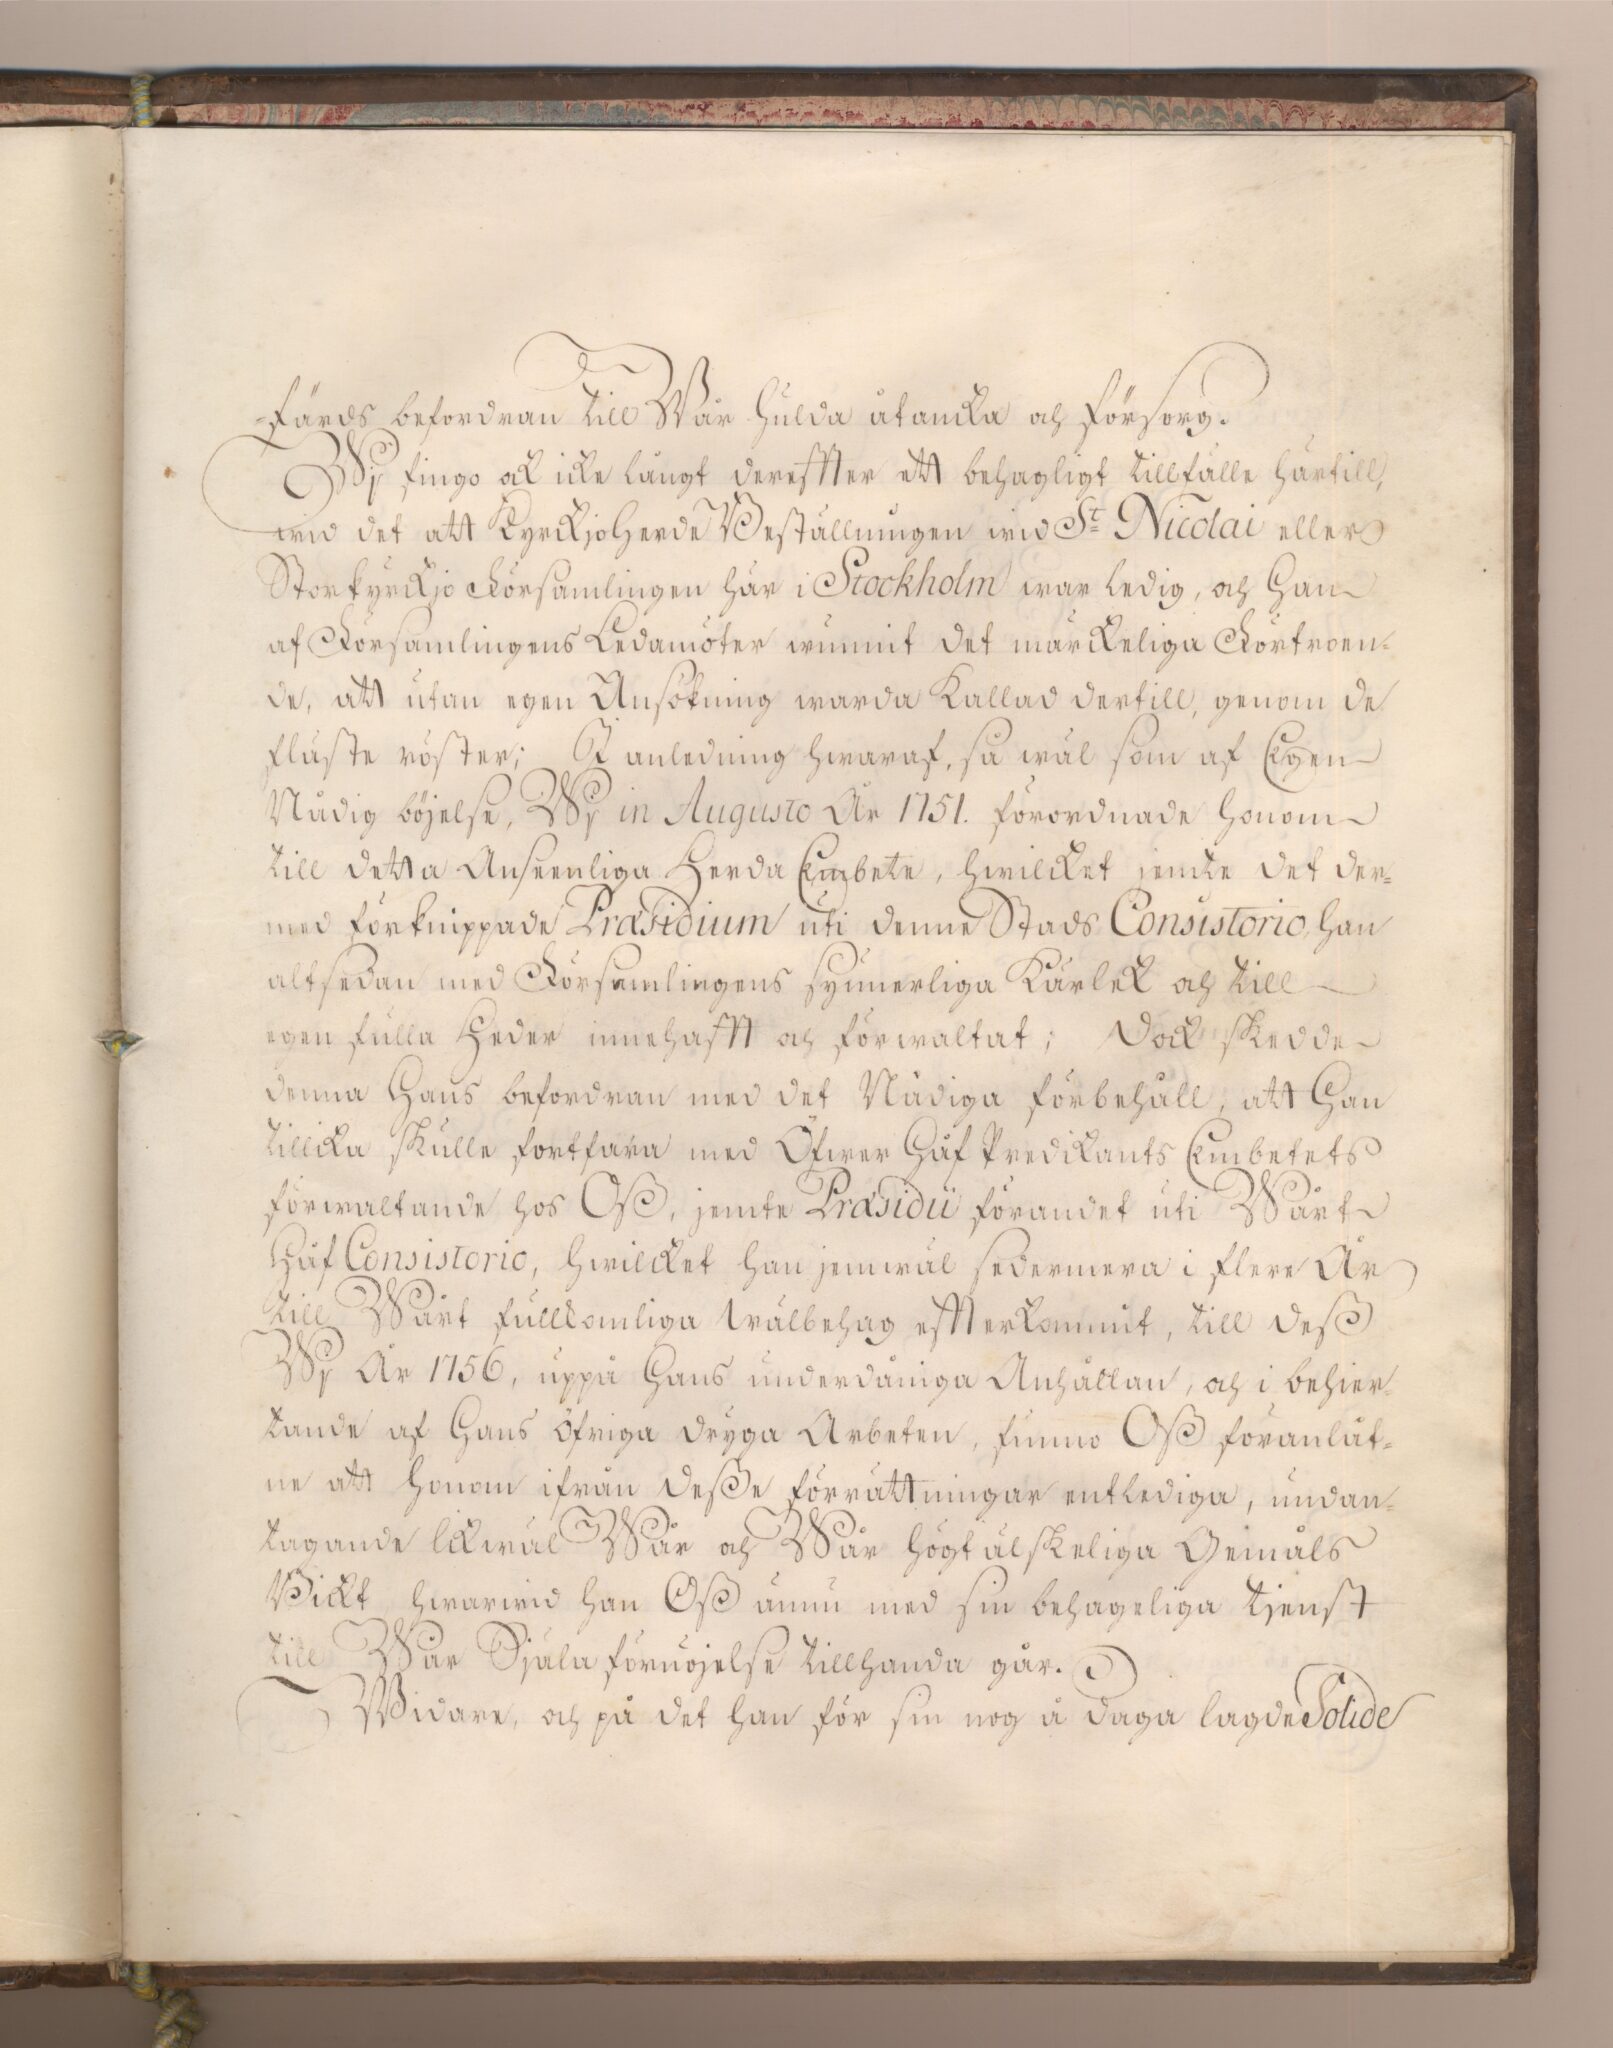 -färds befordran till Wår hulda åtancka och försorg.
Wj fingo ock icke långt dereffter ett behagligt tillfälle härtill,
wid det att KyrckjoHerde Beställningen wid St Nicolai eller
Storkyrckjo Församlingen här i Stockholm war ledig, och Han
af Församlingens Ledamöter wunnit det märckeliga Förtroen-
de, att utan egen Ansökning warda Kallad dertill, genom de
flästa röster; I anledning hwaraf, så wäl som af Egen
Nådig böjelse, Wj in Augusto År 1751. förordnade honom
till detta Anseenliga Herda Embete, hwilcket jemte det der-
med förknippade Præsidium uti denne Stads Consistorio, han
altsedan med Församlingens synnerliga Kärlek och till
egen fulla Heder innehafft och förwaltat; Dock skedde
denna Hans befordran med det Nådiga förbehåll, att Han
tillicka skulle fortfara med Öfwer Håf Predikants Embetets
förwaltande hos Oss, jemte Præsidii förandet uti Wårt
Håf Consistorio, hwilcket han jemwäl sedermera i flere År
till Wårt fullkomliga wälbehag effterkommit, till dess
Wj År 1756, uppå Hans underdåniga Anhållan, och i behier-
tande af Hans öfriga dryga Arbeten, funno Oss föranlåt-
ne att honom ifrån desse förrättningar entlediga, undan-
tagande likwäl Wår och Wår högtälskeliga Gemåls
Bickt, hwarwid han Oss ännu med sin behageliga tjenst
till Wår Själaförnöjelse tillhanda går.
Widare, och på det han för sin nog å daga lagde Solide